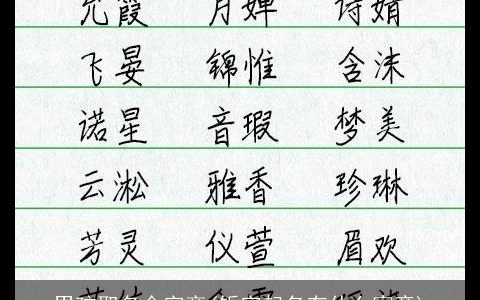 允霞 月婵 诗婧
飞晏 锦惟 含沫
诺星 音瑕 梦美
云淞 雅香 珍琳
芳灵 仪萱 眉欢